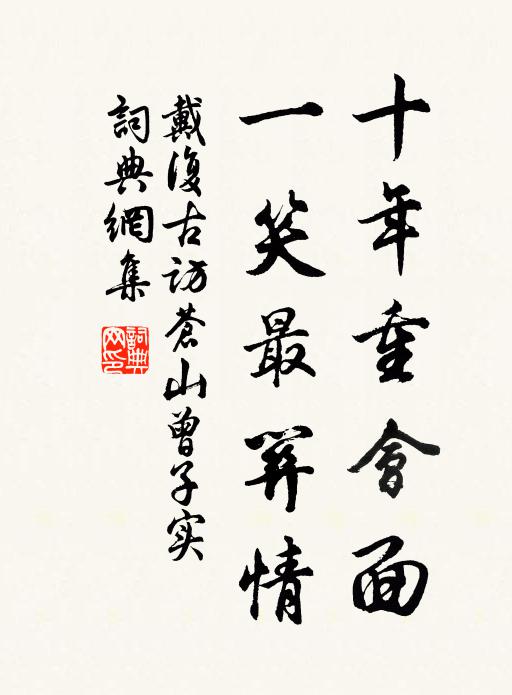 十年重會面
一笑最關情
戴復古訪蒼山曾子实
詞典網集
詞典
网印